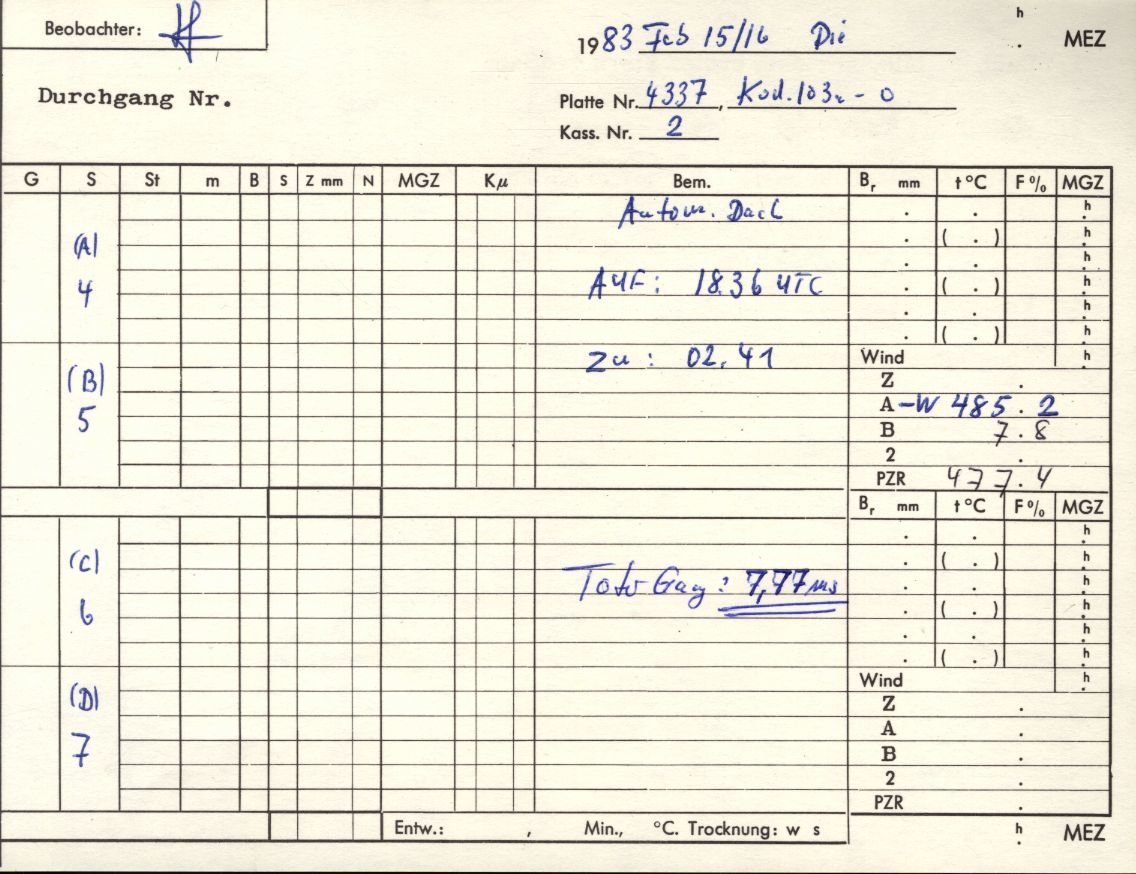 Beobachter:
1983 Feb 15/16 Die h . MEZ
Durchgang Nr.
Platte Nr. 4337, Kod. 103a-0
Kass. Nr. 2
G S St m B S Z mm N MGZ Kµ Bem. Br mm t °C F % MGZ
Autom. Dach . . h
(A) . ( . ) h
. . h
4 AUF: 18.36 UTC . ( . ) h
. . h
. ( . ) h
zu: 02.41 Wind h
(B) Z .
A -W 485.2
5 B 7.8
2 .
PZR 477.4
Br mm t °C F % MGZ
. . h
(C) . ( . ) h
. . h
6 : 7,77 ms . ( . ) h
. . h
. ( . ) h
Wind h
(D) Z .
A .
7 B .
2 .
PZR .
Entw.: , Min., °C. Trocknung: w s h . MEZ